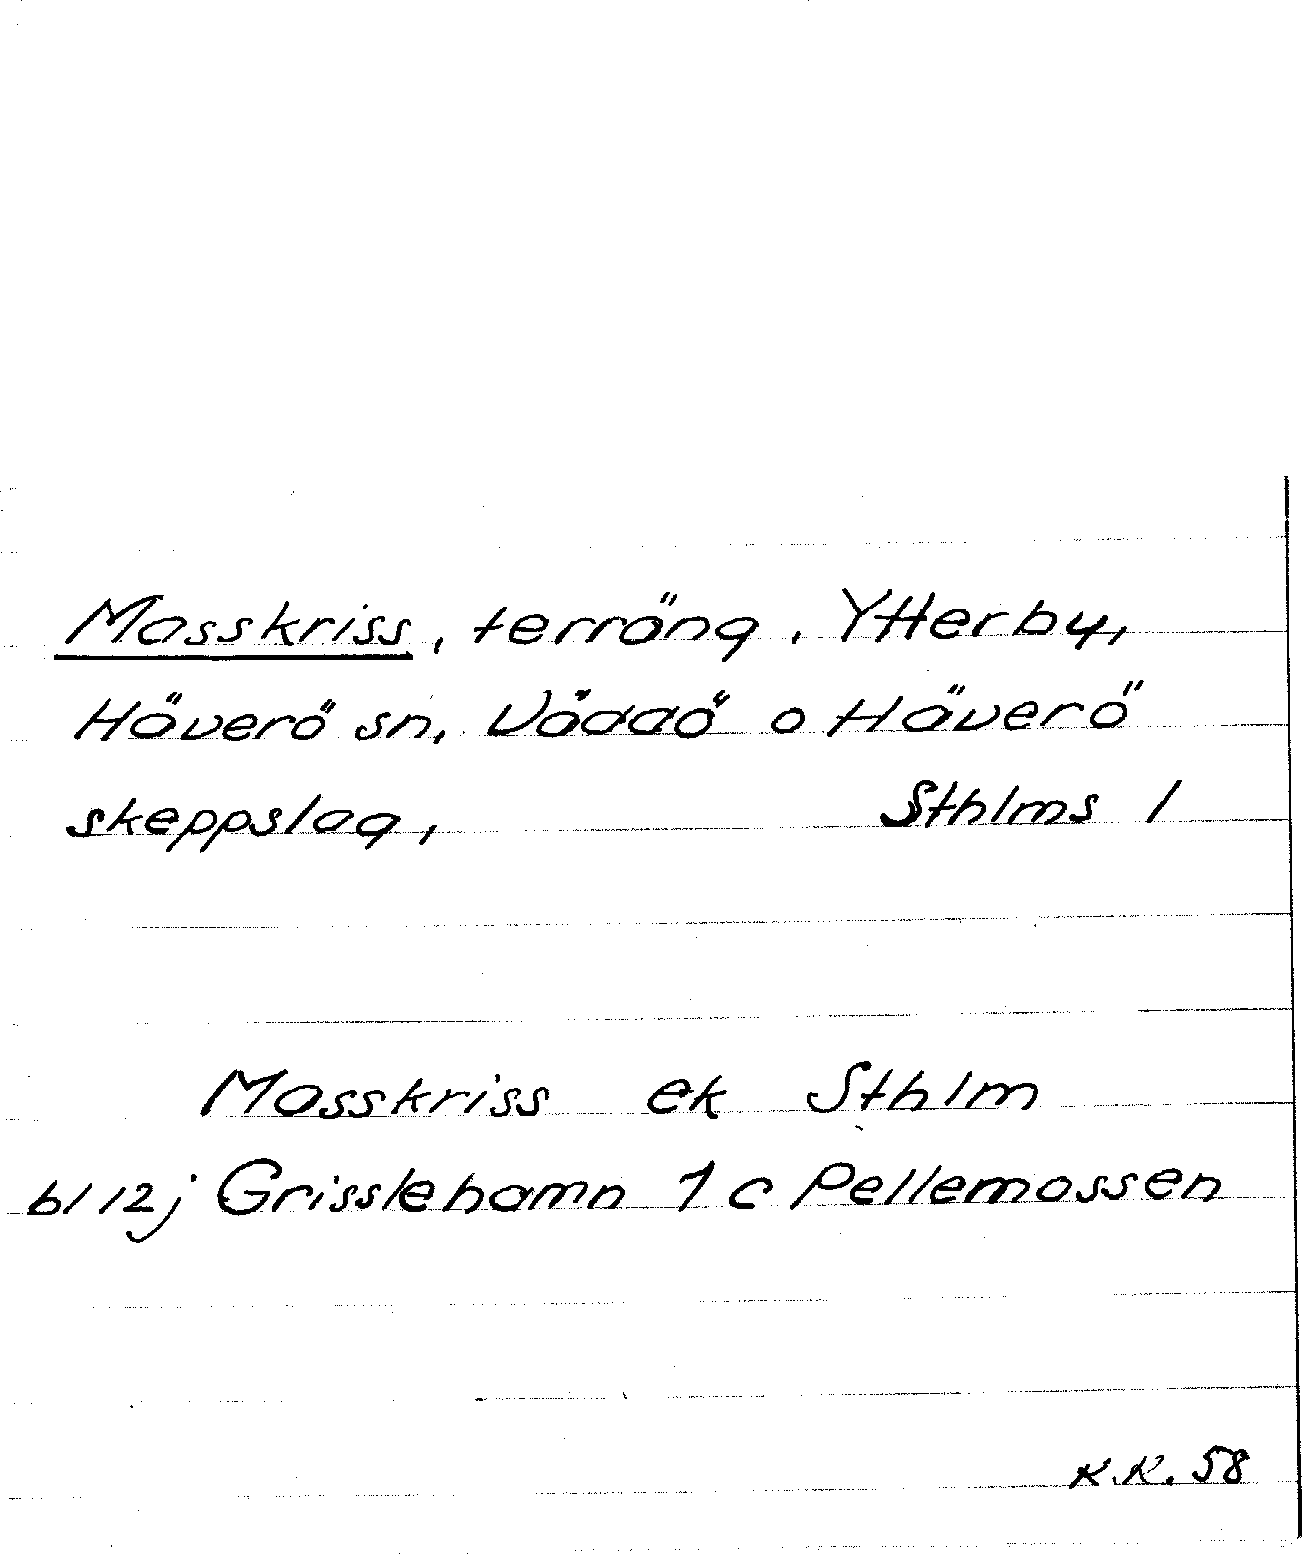 Masskriss, terräng, Ytterby,
Häverö sn, Väddö o Häverö
skeppslag, Sthlms l
Masskriss ek Sthlm
bl 12j Grisslehamn 1 c Pellemossen
K.R. 58